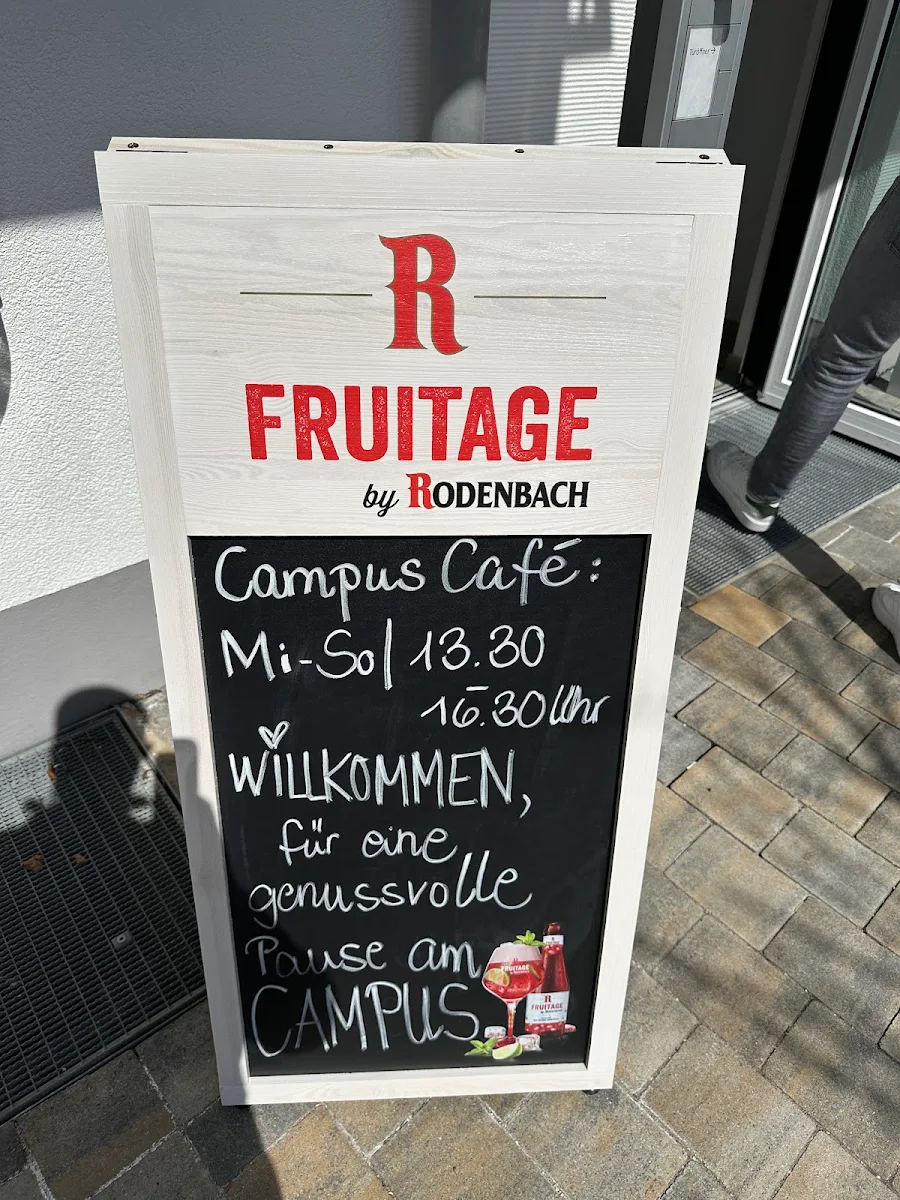 Türöffner →
R
FRUITAGE
by RODENBACH
Campus Café:
Mi-So | 13.30
-
16.30 Uhr
WILLKOMMEN,
für eine
genussvolle
Pause am
CAMPUS
FRUITAGE
R
FRUITAGE